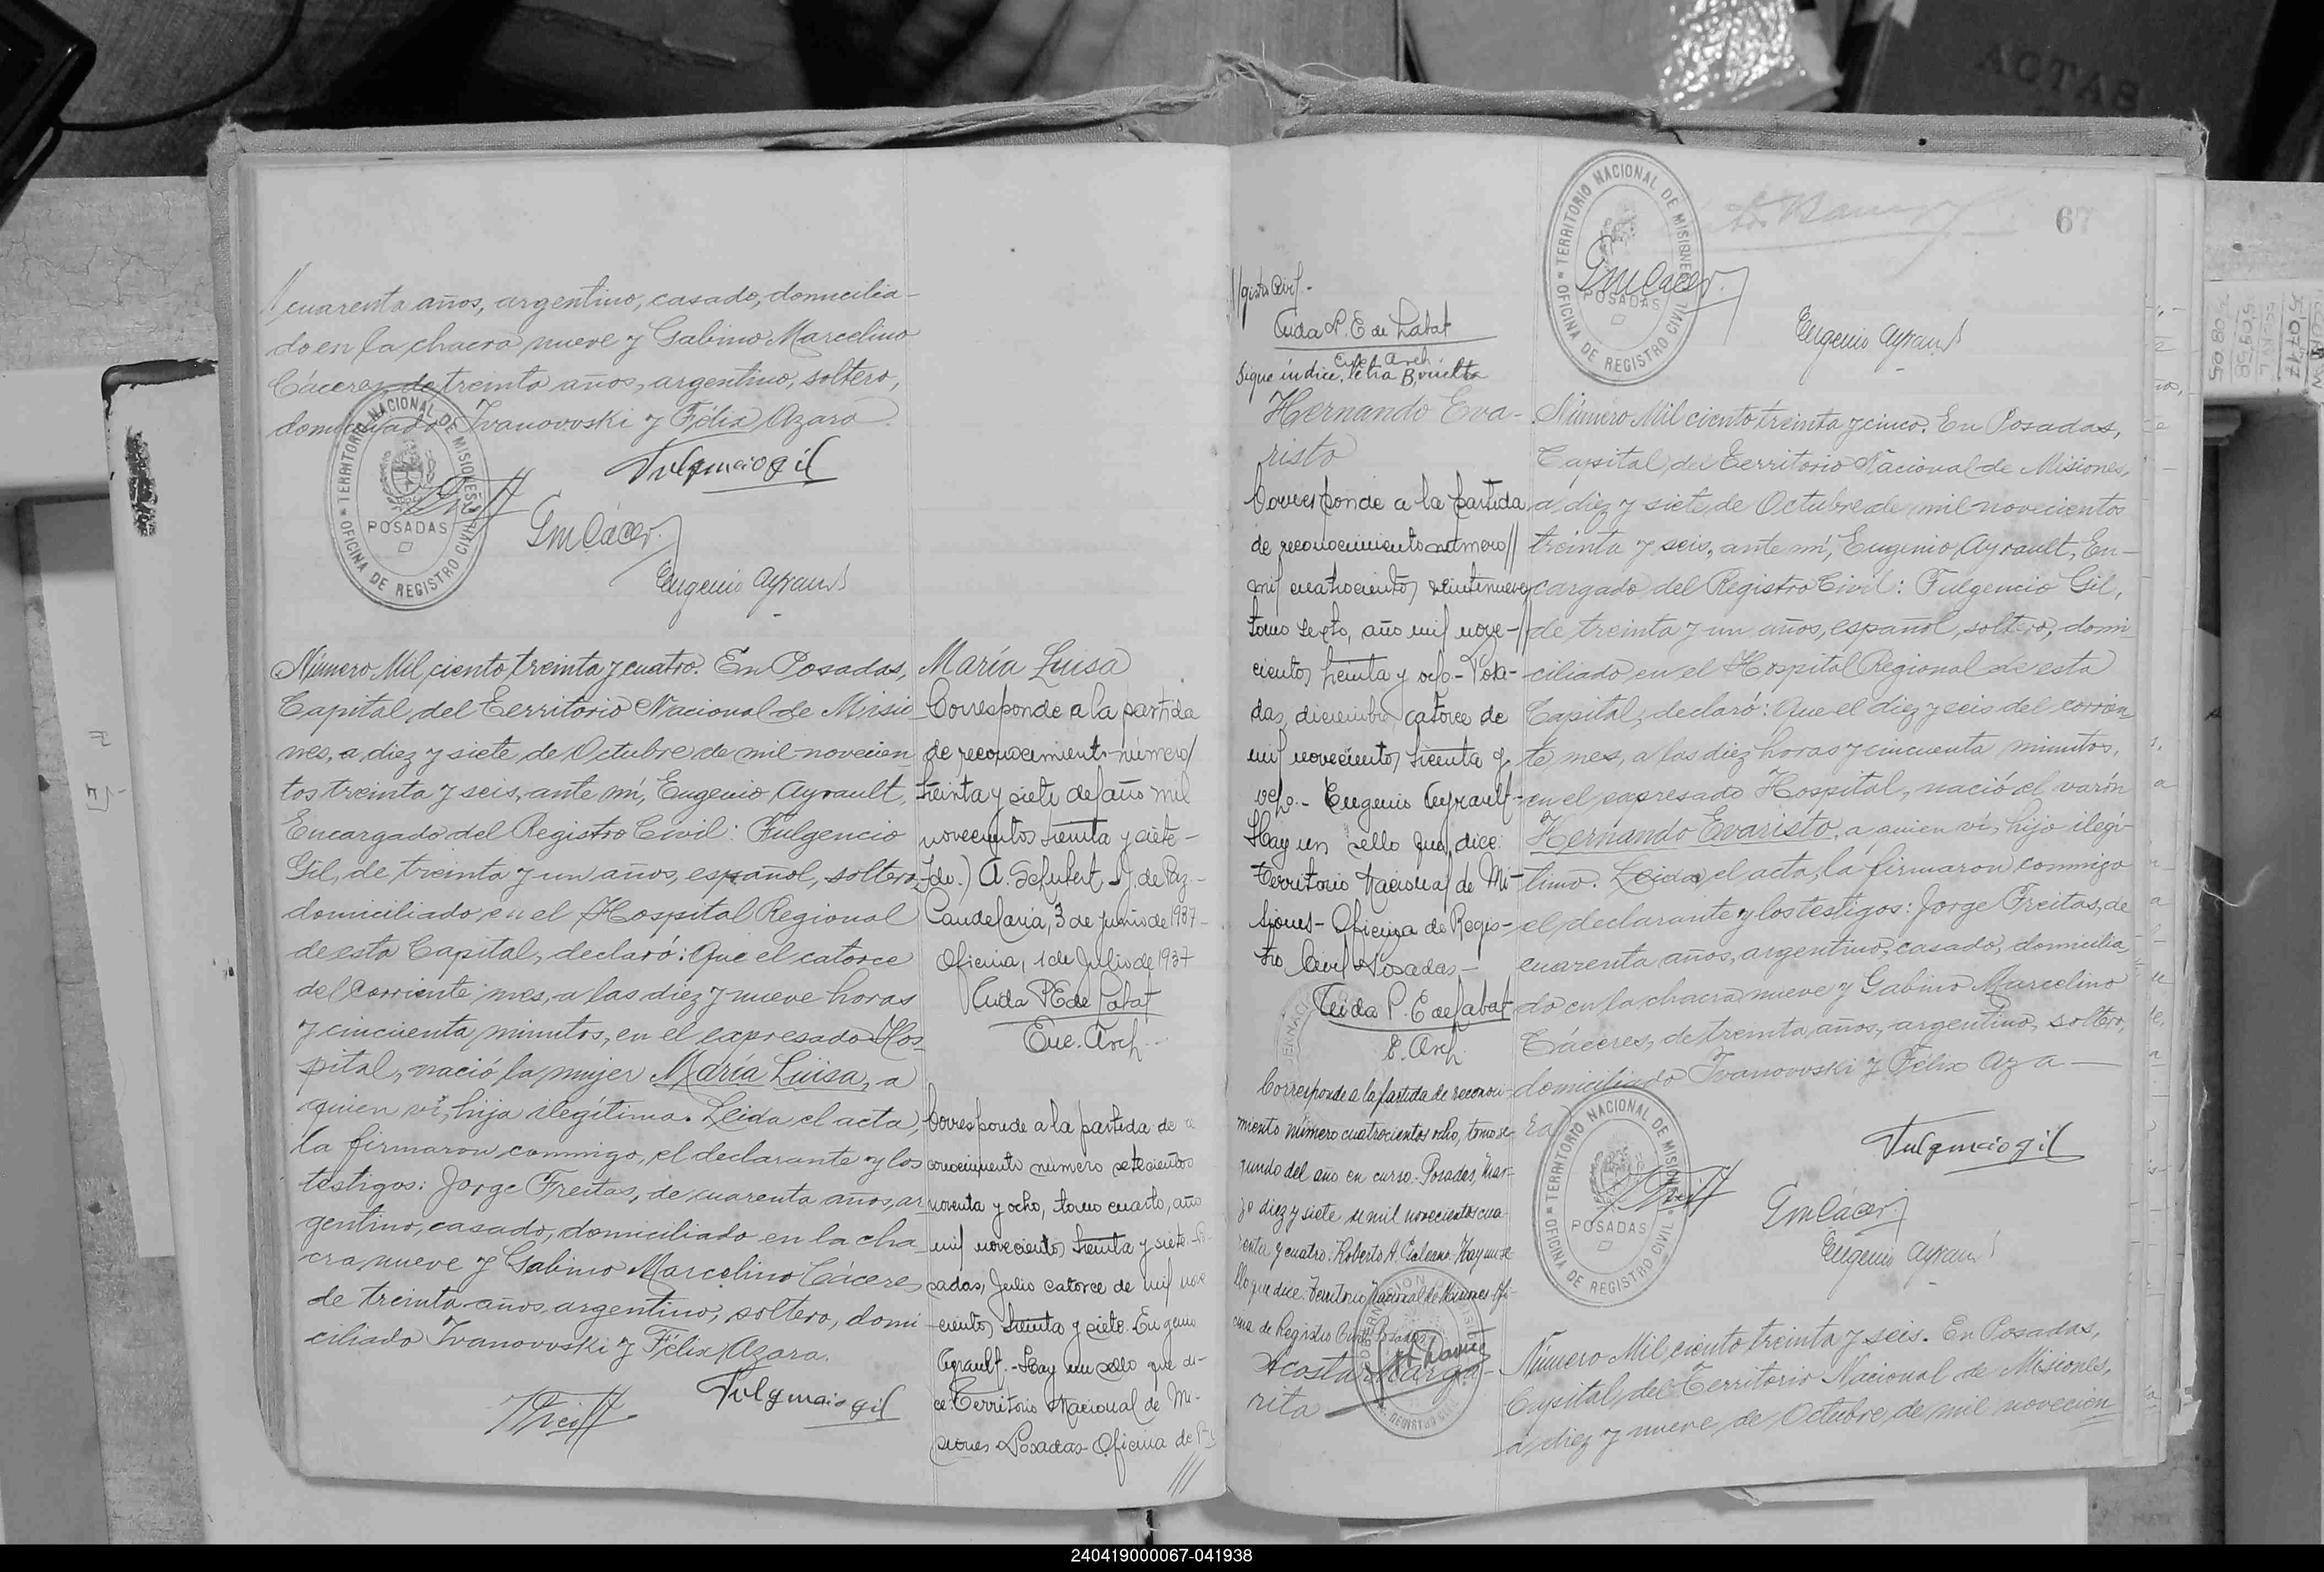 cuarenta años, argentino, casado, domicilia-
do en la chacra nueve y Gabino Marcelino
Cáceres de treinta años, argentino, soltero,
domiciliado Ivanovvski y Félix Azara.
Fulgencio gil
TERRITORIO NACIONAL DE MISIONES
POSADAS
OFICINA DE REGISTRO CIVIL
GmCácer.
Eugenio Ayrault
Número Mil ciento treinta y cuatro. En Posadas,
Capital del Territorio Nacional de Misio-
nes, a diez y siete de Octubre de mil novecien-
tos treinta y seis, ante mí, Eugenio Ayrault,
Encargado del Registro Civil: Fulgencio
Gil, de treinta y un años, español, soltero,
domiciliado en el Hospital Regional
de esta Capital, declaró: Que el catorce
del corriente mes, a las diez y nueve horas
y cincuenta minutos, en el expresado Hos-
pital, nació la mujer María Luisa, a
quien ví, hija ilegítima. Leida el acta,
la firmaron conmigo, el declarante y los
testigos: Jorge Freitas, de cuarenta años, ar-
gentino, casado, domiciliado en la cha-
cra nueve y Gabino Marcelino Cáceres
de treinta años, argentino, soltero, domi-
ciliado Ivanovvski y Félix Azara.
Fulgencio gil
María Luisa
Corresponde a la partida
de reconocimiento número
treinta y siete del año mil
novecientos treinta y siete-
Fdo.) A. Schubert J. de Paz-
Candelaria, 3 de junio de 1937-
Oficina, 1 de Julio de 1937
Aida P E de Labat
Enc. Arch.
Corresponde a la partida de re
conocimiento número setecientos
noventa y ocho, tomo cuarto, año
mil novecientos treinta y siete - Po
sadas, Julio catorce de mil nove
cientos treinta y siete. Eugenio
Ayrault.- Hay un sello que di-
ce: Territorio Nacional de Mi-
siones Posadas- Oficina de
///
//gistro Civil.-
Aida P. E de Labat
Enc. Arch.
Sigue índice, letra B, vuelta
Hernando Eva-
risto
Corresponde a la partida
de reconocimiento número//
mil cuatrocientos veintinueve
tomo sexto, año mil nove-//
cientos treinta y ocho - Posa-
das, diciembre catorce de
mil novecientos treinta y
ocho.- Eugenio Ayrault-
Hay un sello que dice:
Territorio Nacional de Mi-
siones- Oficina de Regis-
tro Civil Posadas-
Aida P. E de Labat
E. Arch.
Corresponde a la partida de reconoci-
miento número cuatrocientos ocho, tomo se-
gundo del año en curso.- Posadas, mar-
zo diez y siete de mil novecientos cua-
renta y cuatro. Roberto A. Galeano. Hay un se-
llo que dice: Territorio Nacional de Misiones- Ofi-
cina de Registro Civil- Posadas
Acosta Marga-
rita
67
TERRITORIO NACIONAL DE MISIONES
POSADAS
OFICINA DE REGISTRO CIVIL
GmCácer.
Eugenio Ayrault
Número Mil ciento treinta y cinco. En Posadas,
Capital del Territorio Nacional de Misiones,
a diez y siete de Octubre de mil novecientos
treinta y seis, ante mí, Eugenio Ayrault, En-
cargado del Registro Civil: Fulgencio Gil,
de treinta y un años, español, soltero, domi-
ciliado en el Hospital Regional de esta
Capital, declaró: Que el diez y seis del corrien
te mes, a las diez horas y cincuenta minutos,
en el expresado Hospital, nació el varón
Hernando Evaristo, a quien ví, hijo ilegí-
timo. Leida el acta, la firmaron conmigo
el declarante y los testigos: Jorge Freitas, de
cuarenta años, argentino, casado, domicilia-
do en la chacra nueve y Gabino Marcelino
Cáceres, de treinta años, argentino, soltero,
domiciliado Ivanovvski y Félix Aza-
ra
Fulgencio gil
TERRITORIO NACIONAL DE MISIONES
POSADAS
OFICINA DE REGISTRO CIVIL
GmCácer.
Eugenio Ayrault
Número Mil ciento treinta y seis. En Posadas,
Capital del Territorio Nacional de Misiones,
a diez y nueve de Octubre de mil novecien
ACTAS
240419000067-041938